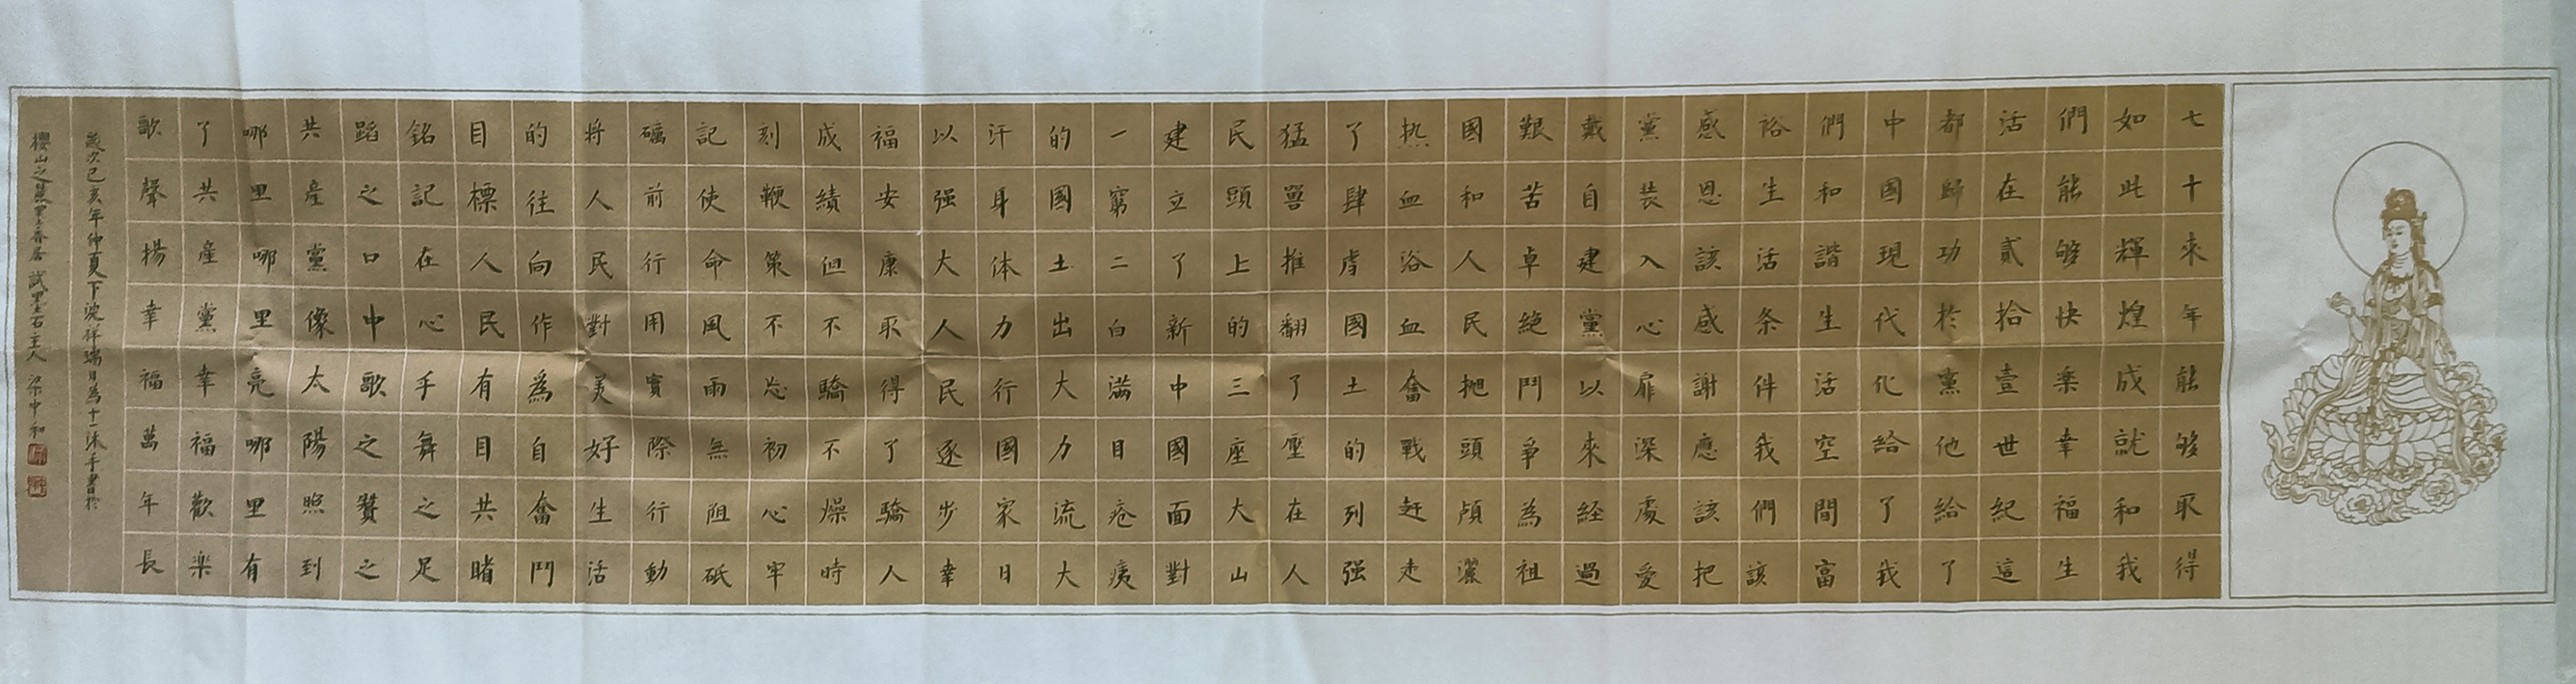 七十來年能够取得
如此輝煌成就和我
們能够快樂幸福生
活在貳拾壹世紀這
都歸功於黨他給了
中國現代化給了我
們和諧生活空間富
裕生活条件我們該
感恩該感謝應該把
黨装入心扉深處愛
戴自建黨以來經過
艱苦卓絶鬥爭為祖
國和人民抛頭顱灑
热血浴血奮戰赶走
了肆虐國土的列强
猛獸推翻了壓在人
民頭上的三座大山
建立了新中國面對
一窮二白滿目疮痍
的國土出大力流大
汗身体力行國家日
以强大人民逐步幸
福安康取得了驕人
成績但不驕不燥時
刻鞭策不忘初心牢
記使命風雨無阻砥
礪前行用實際行動
將人民對美好生活
的往向作爲自奮鬥
目標人民有目共睹
銘記在心手舞之足
蹈之口中歌之贊之
共產黨像太陽照到
哪里哪里亮哪里有
了共產黨幸福歡樂
歌聲揚幸福萬年長
歲次己亥年仲夏下浣祥瑞日為十一沐手書於
櫻山之墨香居 試墨石主人 梁中和